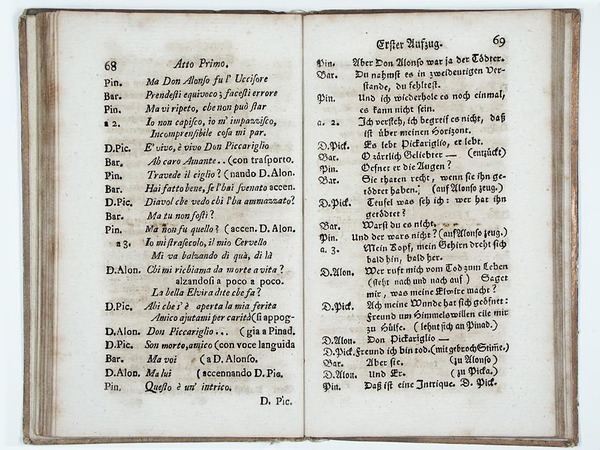 68 Atto Primo.
Pin. Ma Don Alonso fu l' Uccisore
Bar. Prendesti equivoco; facesti errore
Pin. Ma vi ripeto, che non può star
a 2. Io non capisco, io m' impazzisco,
Incomprensibile cosa mi par.
D.Pic. E' vivo, è vivo Don Piccariglio
Bar. Ah caro Amante.. (con trasporto.
Pin. Travede il ciglio? (nando D. Alon.
Bar. Hai fatto bene, se l'hai svenato accen.
D.Pic. Diavol che vedo chi l'ha ammazzato?
Bar. Ma tu non fosti?
Pin. Ma non fu quello? (accen. D. Alon.
a 3. Io mi strasecolo, il mio Cervello
Mi va balzando di quà, di là
D.Alon. Chi mi richiama da morte a vita?
alzandosi a poco a poco.
La bella Elvira dite che fa?
D.Pic. Ahi che s' è aperta la mia ferita
Amico ajutami per carità (si appog-
D.Alon. Don Piccariglio... (gia a Pinad.
D.Pic. Son morto, amico (con voce languida
Bar. Ma voi (a D. Alonso.
D.Alon. Ma lui (accennando D. Pic.
Pin. Questo è un' intrico.
D. Pic.
Erster Aufzug. 69
Pin. Aber Don Alonso war ja der Tödter.
Bar. Du nahmst es in zweideutigen Ver-
stande, du fehltest.
Pin. Und ich wiederhole es noch einmal,
es kann nicht sein.
a. 2. Ich versteh, ich begreif es nicht, daß
ist über meinen Horizont.
D.Pick. Es lebt Pickariglio, er lebt.
Bar. O zärtlich Geliebter — (entzückt)
Pin. Oefnet er die Augen?
Bar. Sie thaten recht, wenn sie ihn ge-
tödtet haben. (auf Alonso zeug.)
D.Pick. Teufel was seh ich: wer hat ihn
getödtet?
Bar. Warst du es nicht,
Pin. Und der wars nicht? (auf Alonso zeug.)
a. 3. Mein Kopf, mein Gehirn dreht sich
bald hin, bald her.
D.Alon. Wer ruft mich vom Tod zum Leben
(steht nach und nach auf) Saget
mir, was meine Elwire macht?
D.Pick. Ach meine Wunde hat sich geöfnet:
Freund um Himmelswillen eile mir
zu Hülfe. (lehnt sich an Pinad.)
D.Alon. Don Pickariglio —
D.Pick. Freund ich bin tod. (mit gebroch Stim̃e.)
Bar. Aber sie. (zu Alonso)
D.Alon. Und Er. (zu Picka.)
Pin. Daß ist eine Intrique. D. Pick.